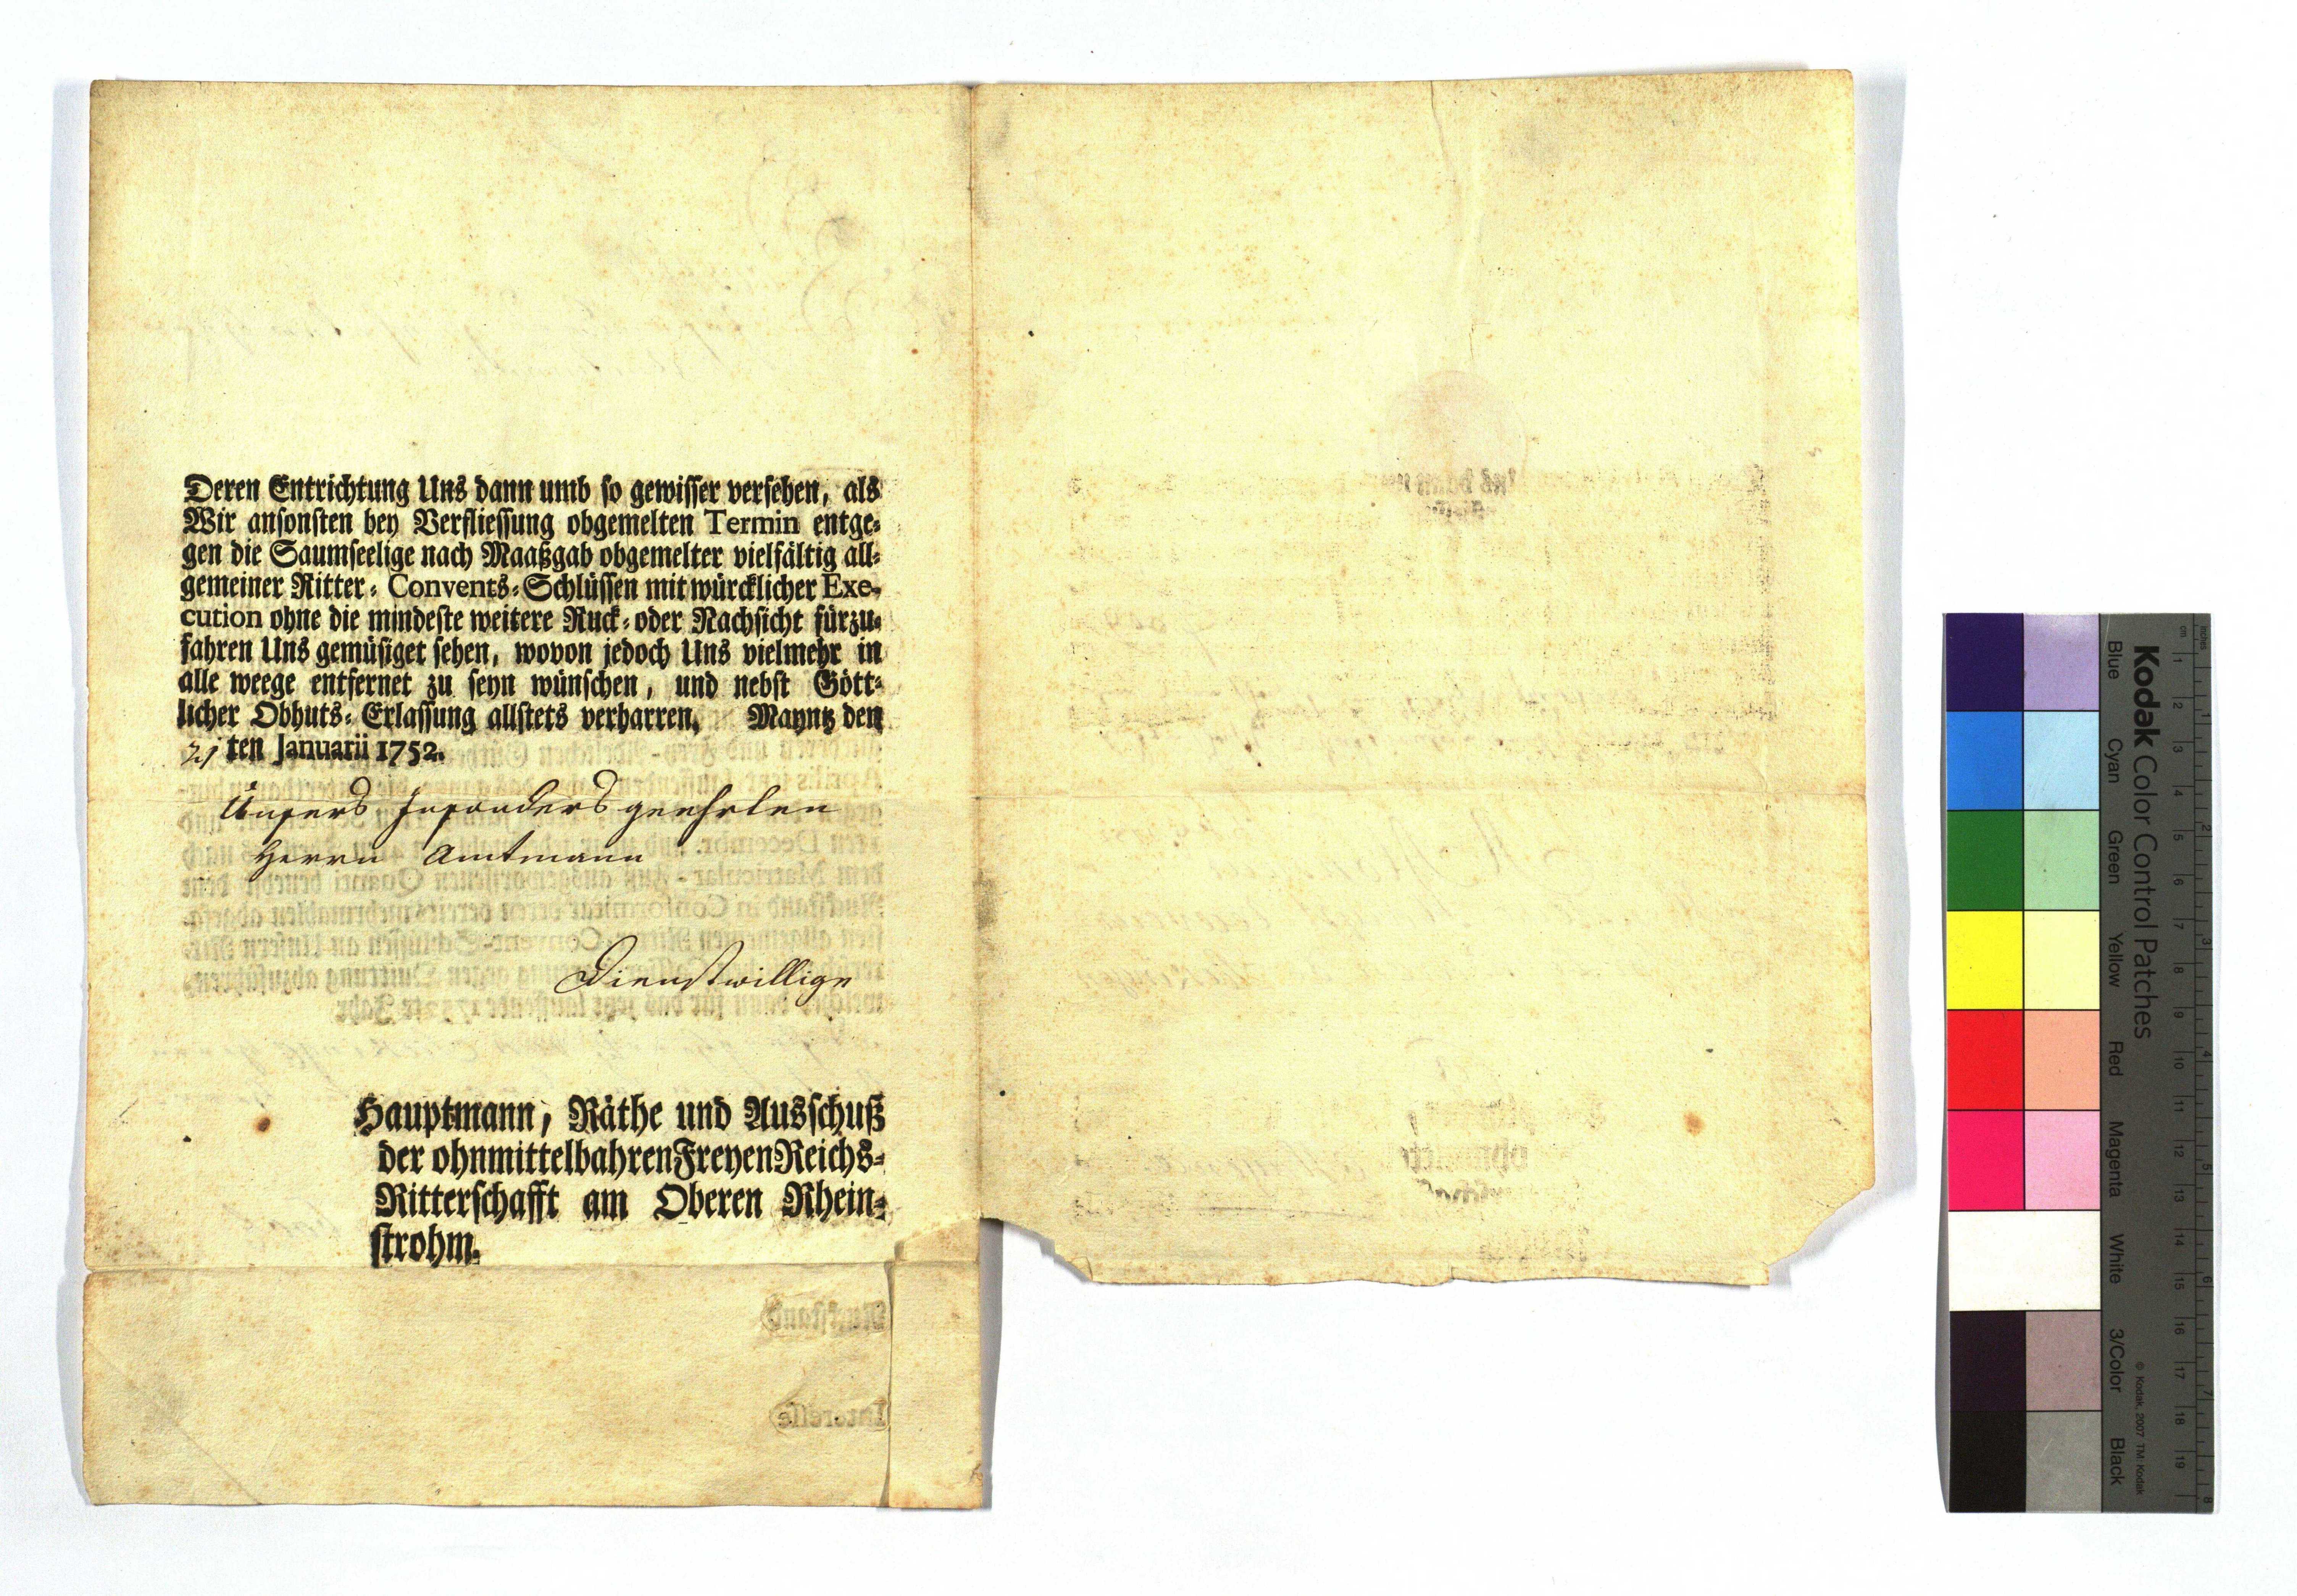 Deren Entrichtung Uns dann umb so gewisser versehen, als
Wir ansonsten bey Verfliessung obgemelten Termin entge-
gen die Saumseelige nach Maaßgab obgemelter vielfältig all-
gemeiner Ritter-Convents-Schlüssen mit würcklicher Exe-
cution ohne die mindeste weitere Ruck- oder Nachsicht fürzu-
fahren Uns gemüsiget sehen, wovon jedoch Uns vielmehr in
alle weege entfernet zu seyn wünschen, und nebst Gött-
licher Obhuts-Erlassung allstets verharren. Mayntz den
21 ten Januarii 1752.
Unsers Insonders geehrten
Herrn Amtmann
Dienstwillige
Hauptmann, Räthe und Ausschuß
der ohnmittelbahren Freyen Reichs-
Ritterschafft am Oberen Rhein-
strohm.
Ruckstand
Interesse
Kodak Color Control Patches
Blue Cyan Green Yellow Red Magenta White 3/Color Black
© Kodak, 2007 TM: Kodak
inches 1 2 3 4 5 6 7 8
cm 1 2 3 4 5 6 7 8 9 10 11 12 13 14 15 16 17 18 19